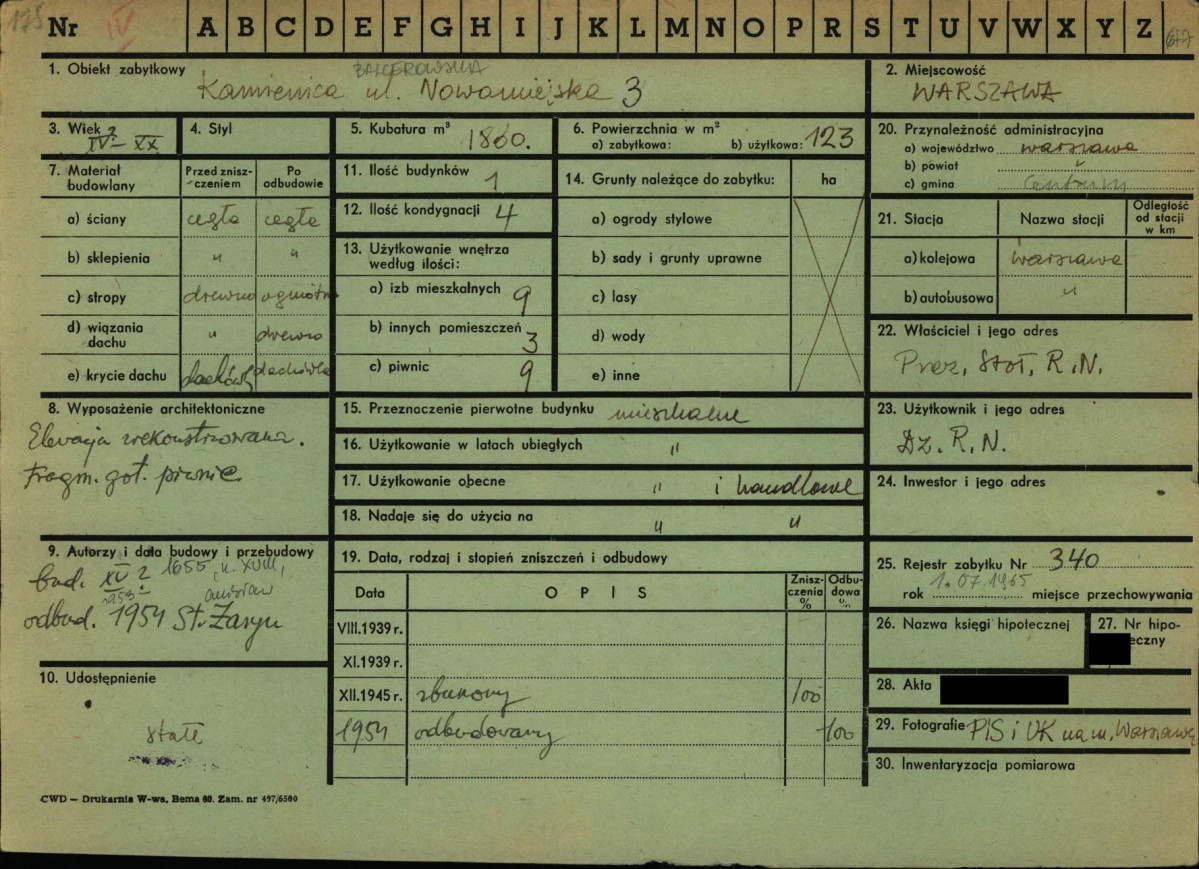 175 Nr IV A B C D E F G H I J K L M N O P R S T U V W X Y Z 677
1. Obiekt zabytkowy BALCEROWSKA
Kamienica ul. Nowomiejska 3
2. Miejscowość
WARSZAWA
3. Wiek
XV? - XX
4. Styl
5. Kubatura m³ 1860.
6. Powierzchnia w m²
a) zabytkowa: b) użytkowa: 123
20. Przynależność administracyjna
a) województwo warszawa
b) powiat "
c) gmina
7. Materiał budowlany
Przed zniszczeniem
Po odbudowie
a) ściany cegła cegła
b) sklepienia " "
c) stropy drewno ogniotr
d) wiązania dachu " drewno
e) krycie dachu dachówk dachówka
11. Ilość budynków 1
12. Ilość kondygnacji 4
13. Użytkowanie wnętrza
według ilości:
a) izb mieszkalnych 9
b) innych pomieszczeń 3
c) piwnic 9
14. Grunty należące do zabytku: ha
a) ogrody stylowe
b) sady i grunty uprawne
c) lasy
d) wody
e) inne
21. Stacja Nazwa stacji Odległość od stacji w km
a) kolejowa warszawa
b) autobusowa "
22. Właściciel i jego adres
Prez. Stoł. R.N.
8. Wyposażenie architektoniczne
Elewacja zrekonstruowana.
Fragm. got. piwnic.
15. Przeznaczenie pierwotne budynku mieszkalne
16. Użytkowanie w latach ubiegłych "
17. Użytkowanie obecne " i handlowe
18. Nadaje się do użycia na " "
23. Użytkownik i jego adres
Dz. R.N.
24. Inwestor i jego adres
9. Autorzy i data budowy i przebudowy
bud. XV? 1655, k. XVIII,
1953
odbud. 1954 St. Żaryn
19. Data, rodzaj i stopień zniszczeń i odbudowy
Data OPIS Zniszczenia % Odbudowa %
VIII.1939 r.
XI.1939 r.
XII.1945 r. zburzony 100
1954 odbudowany 100
25. Rejestr zabytku Nr 340
rok 1.07.1965 miejsce przechowywania
26. Nazwa księgi hipotecznej
27. Nr hipo-
eczny
10. Udostępnienie
stałe
28. Akta
29. Fotografie PIS i UK na m. Warszawę
30. Inwentaryzacja pomiarowa
CWD — Drukarnia W-wa, Bema 60. Zam. nr 497/6500